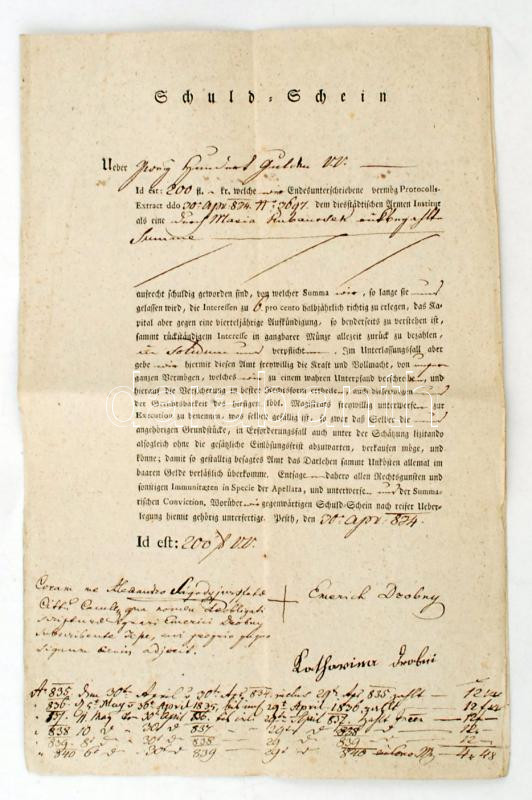 Schuld-Schein
Ueber Hundert Gulden W.W.
Id est: 200 fl. - kr. welche wir Endesunterschriebene vermög Protocolls-
Extract ddo 30t Apr. 834. No 3697. dem diesstädtischen Armen Institut
als eine durch Maria ausbezahlte
Summe
aufrecht schuldig geworden sind, von welcher Summa wir, so lange sie uns
gelassen wird, die Interessen zu 6 pro cento halbjährlich richtig zu erlegen, das Ka-
pital aber gegen eine vierteljährige Aufkündigung, so beyderseits zu verstehen ist,
sammt rückständigem Interesse in gangbarer Münze allezeit zurück zu bezahlen,
in Solidum uns verpflichten. Im Unterlassungsfall aber
gebe wir hiermit diesem Amt freywillig die Kraft und Vollmacht, von unserm
ganzen Vermögen, welches wir zu einem wahren Unterpfand verschreiben, und
hierauf die Versicherung in bester Rechtsform ertheilen, auch dieserwegen uns
der Gerichtsbarkeit des hiesigen löbl. Magistrats freywillig unterwerfe zur
Execution zu benennen, was selben gefällig ist, so zwar daß Selber die
angehörigen Grundstücke, in Erforderungsfall auch unter der Schätzung lizitando
alsogleich ohne die gesätzliche Einlösungsfrist abzuwarten, verkaufen möge, und
könne; damit so gestaltig besagtes Amt das Darlehen sammt Unkösten allemal im
baaren Gelde verläßlich überkomme. Entsage daher allen Rechtsgunsten und
sonstigen Immunitaten in Specie der Apellata, und unterwerfe uns der Summa-
rischen Conviction. Vorüber wir gegenwärtigen Schuld-Schein nach reifer Ueber-
legung hiemit gehörig unterfertige. Pesth, den 30t Apr. 834.
Id est: 200 f W.W.
Coram me Alexandro
Emerich Drobny
scripturae ignari Emerici Drobny
subscribente, qui proprio
signum crucis adjecit.
Katharina Drobni
835 den 30t April 834 29t Apr. 835 zahlt 12
836 5t May 30t April 1835, bis 29t April 1836 zahlt 12
837 May 30t April 836 bis 29t April 837 zahlt 12
838 10 30 837 29 838 12
839 30 838 29 839 12
840 30 839 29 840 4 48